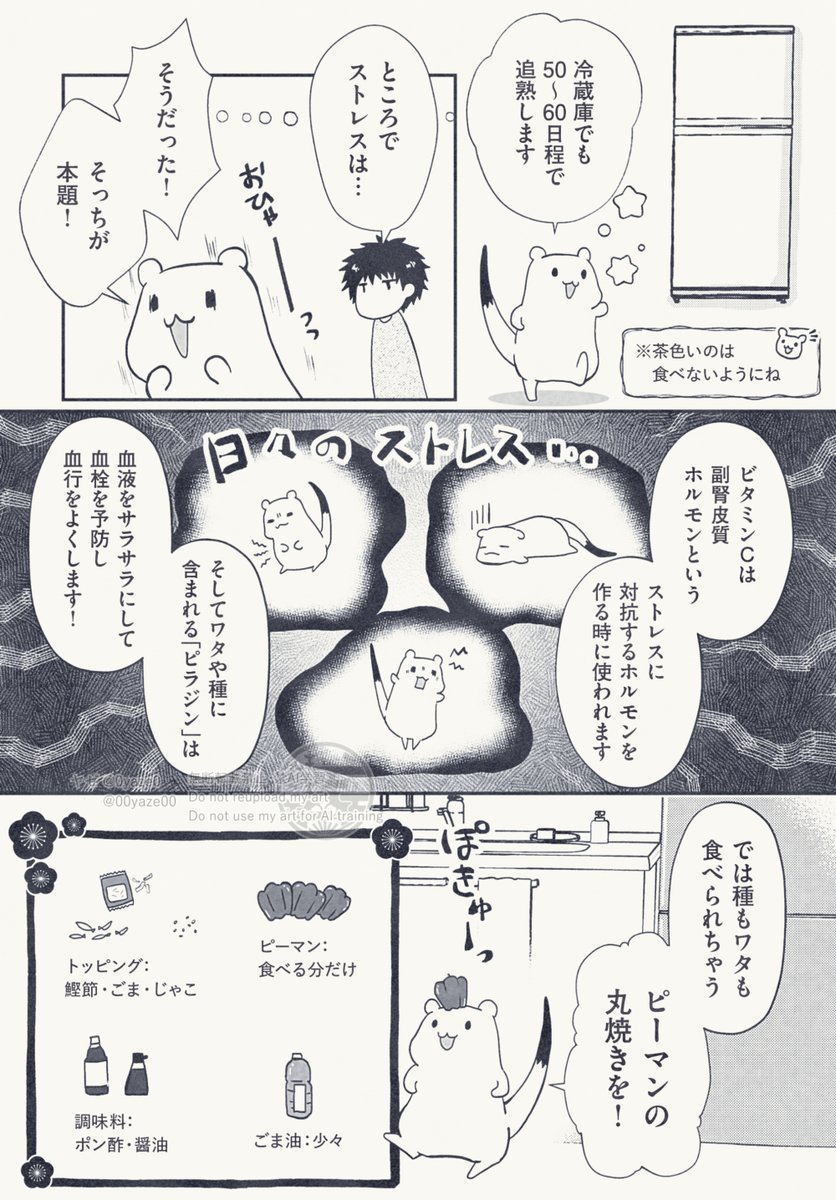 冷蔵庫でも
50～60日程で
追熟します
※茶色いのは
食べないようにね
ところで
ストレスは…
おひゃーっっ
そうだった！
そっちが
本題！
日々のストレス…
ビタミンCは
副腎皮質
ホルモンという
ストレスに
対抗するホルモンを
作る時に使われます
そしてワタや種に
含まれる「ピラジン」は
血液をサラサラにして
血栓を予防し
血行をよくします！
@00yaze00
Do not reupload my art
Do not use my art for AI training
では種もワタも
食べられちゃう
ピーマンの
丸焼きを！
ぽきゅーっ
ピーマン：
食べる分だけ
トッピング：
鰹節・ごま・じゃこ
ごま油：少々
調味料：
ポン酢・醤油